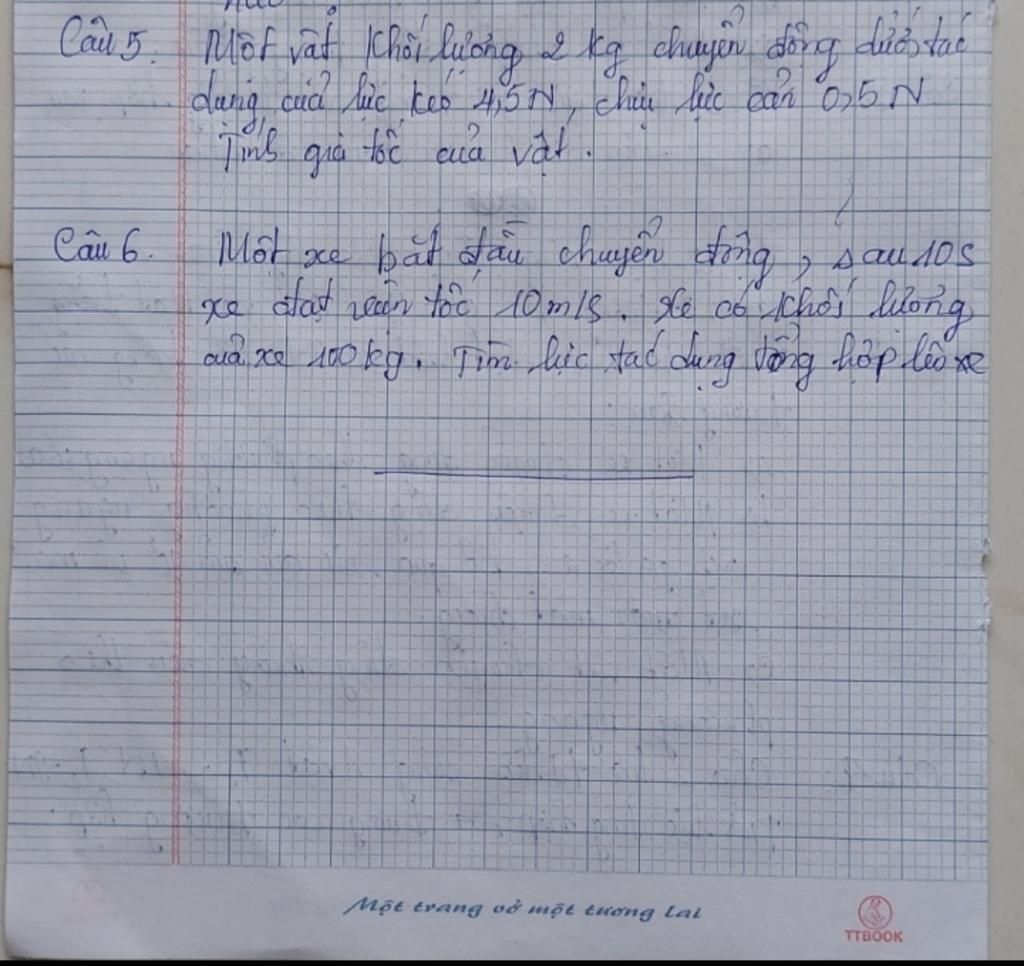 Câu 5. Một vật khối lượng 2 kg chuyển động dưới tác
dụng của lực kéo 4,5N, chịu lực cản 0,5N
Tính gia tốc của vật.
Câu 6. Một xe bắt đầu chuyển động, sau 10s
xe đạt vận tốc 10m/s. Xe có khối lượng
của xe 100kg. Tìm lực tác dụng tổng hợp lên xe
Một trang vở một tương lai
TTBOOK